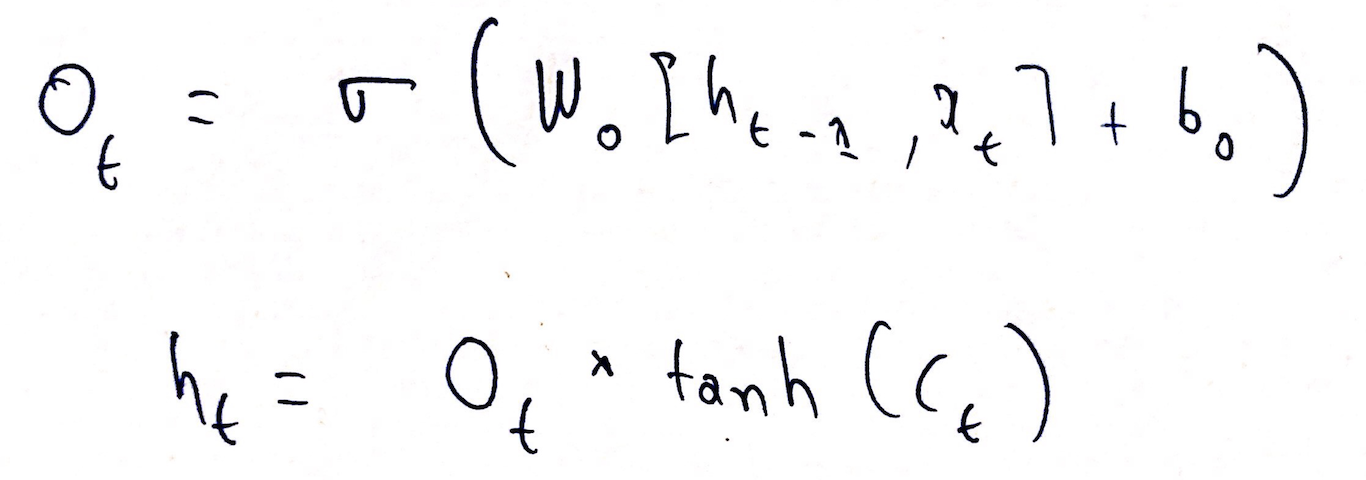 O_t = σ ( W_o [ h_{t-1} , x_t ] + b_o )
h_t = O_t * tanh ( C_t )